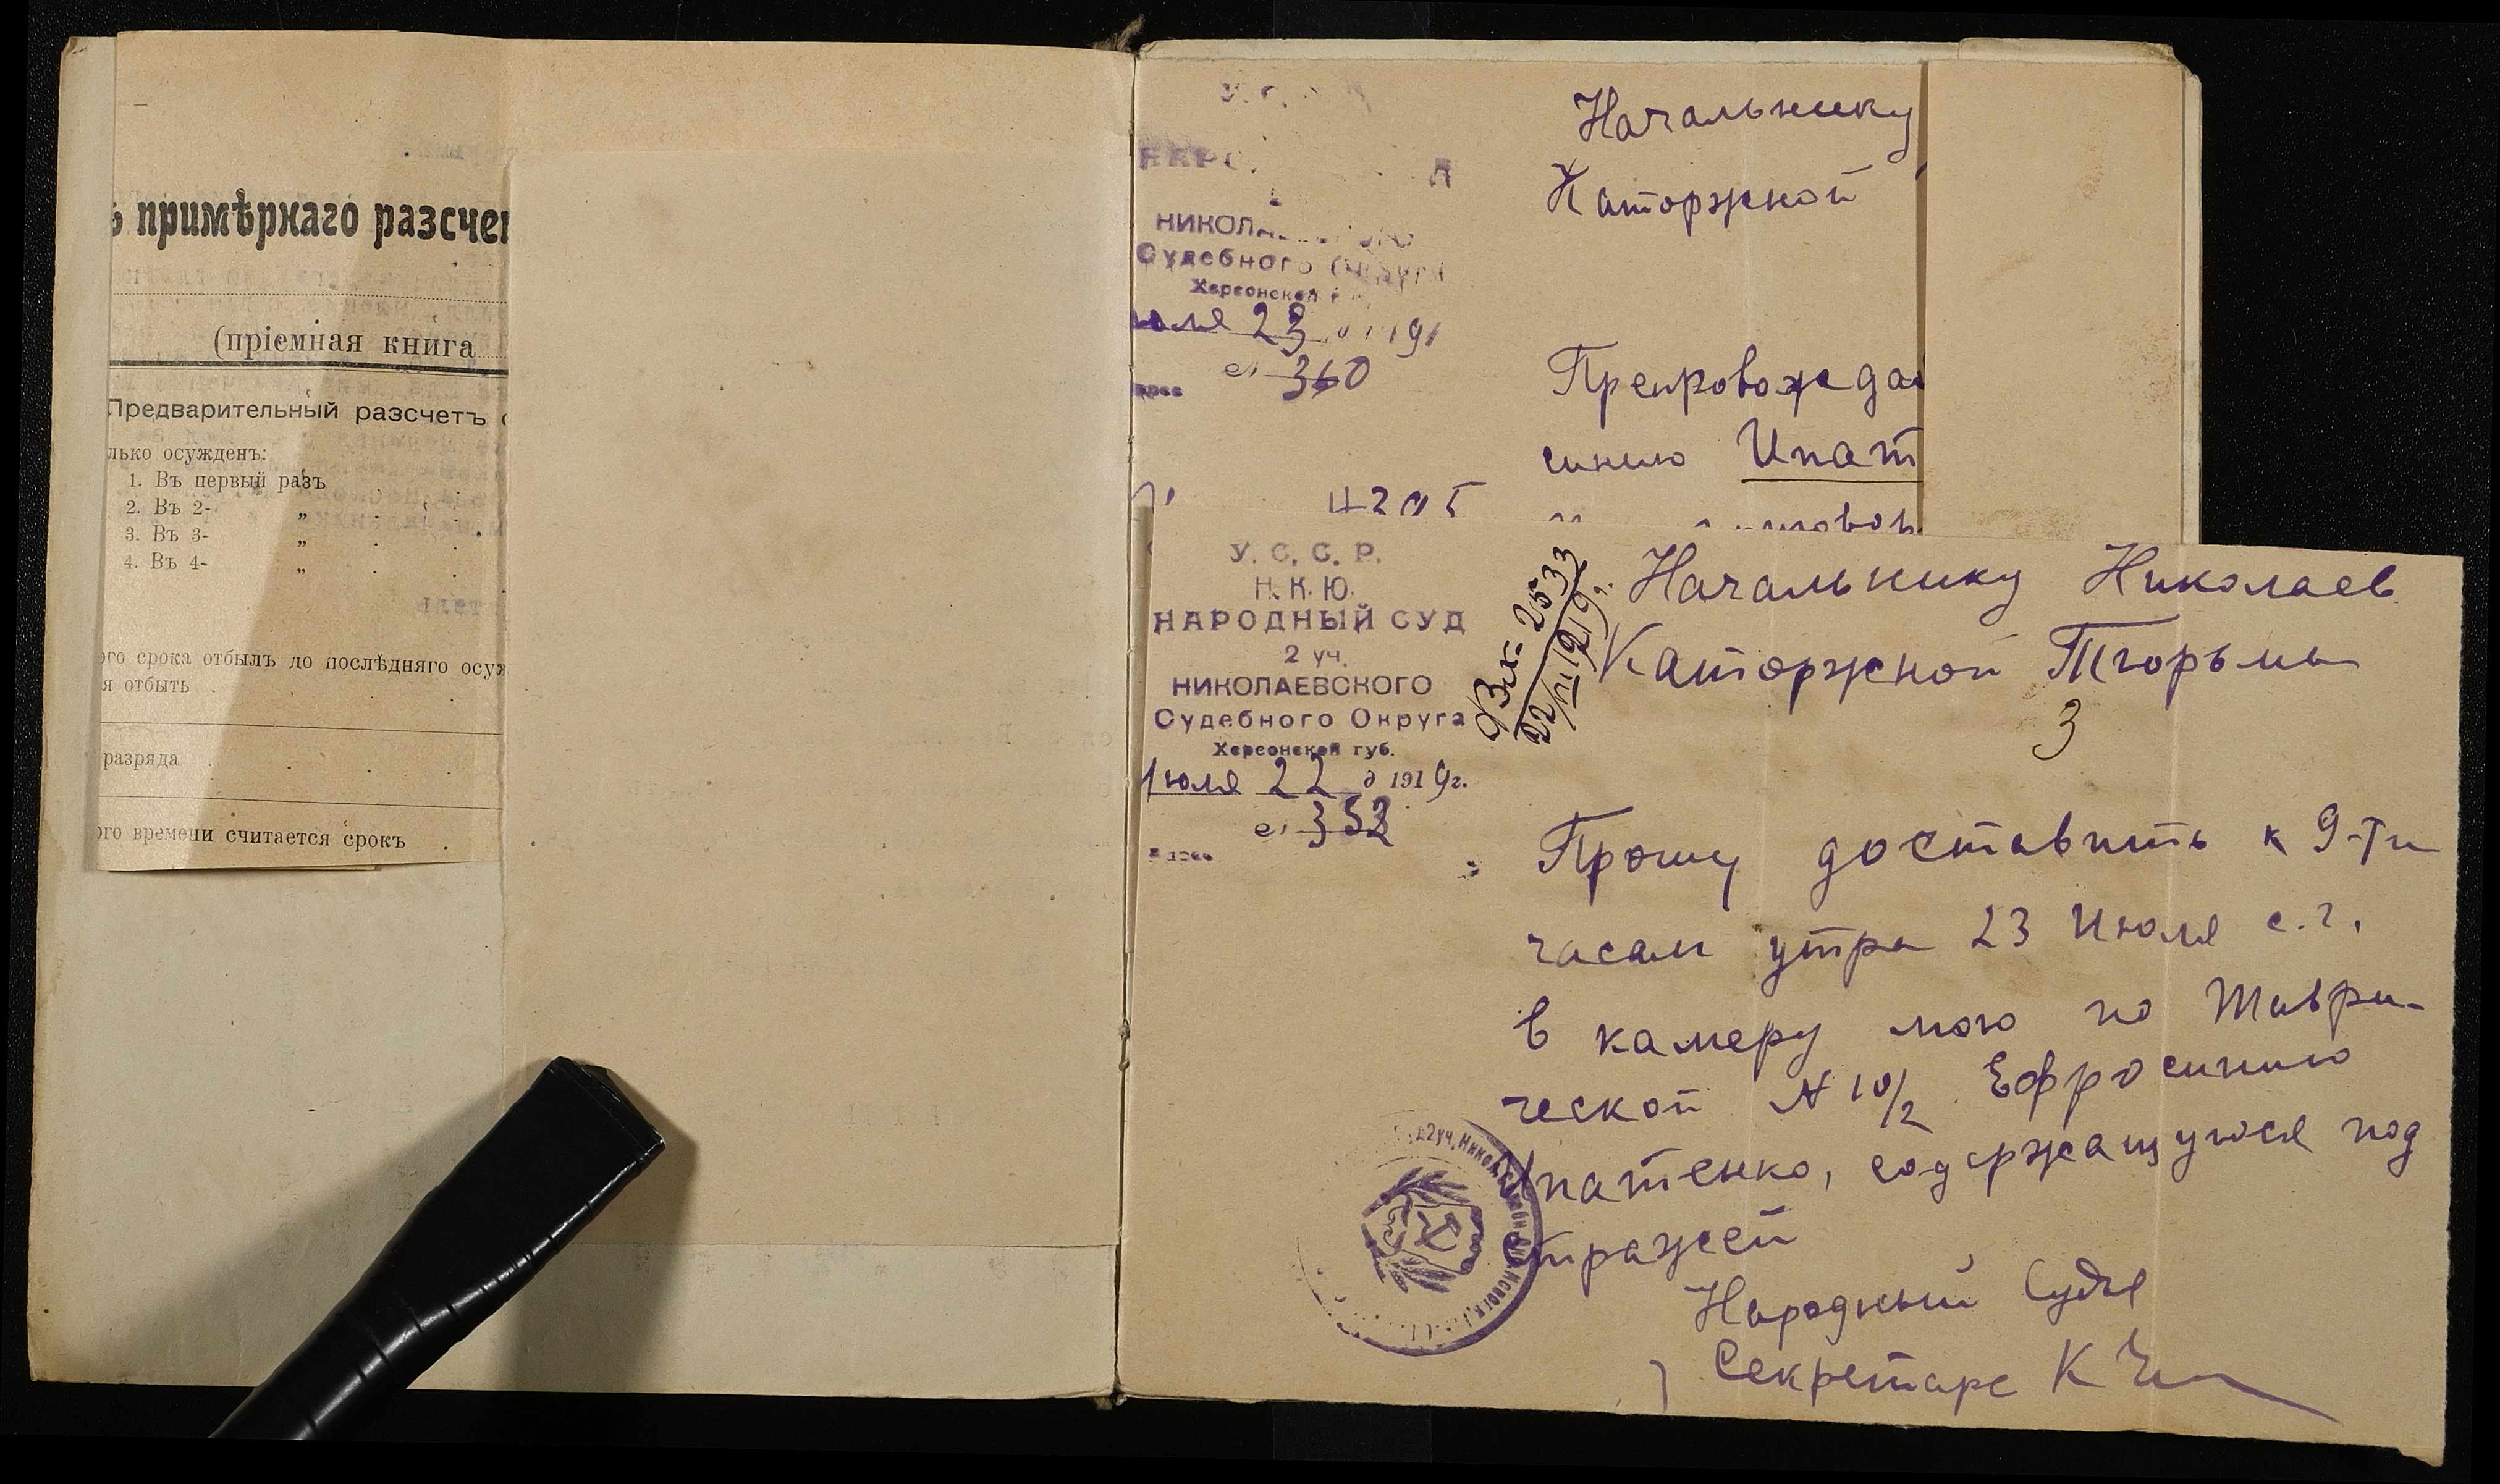 примѣрнаго разсчет
(пріемная книга
Предварительный разсчетъ
лько осужденъ:
1. Въ первый разъ
2. Въ 2- „
3. Въ 3- „
4. Въ 4- „
го срока отбылъ до послѣдняго осуж
я отбыть
разряда
ого времени считается срокъ
Начальнику
Каторжной
НИКОЛА
Судебного Округа
Херсонской
юля 23 191
360
Препровождаю
синию Ипат
У. С. С. Р.
Н. К. Ю.
НАРОДНЫЙ СУД
2 уч.
НИКОЛАЕВСКОГО
Судебного Округа
Херсонской губ.
Июля 22 д 1919г.
352
Вх. 2533
22/VII 1919г.
Начальнику Николаев
Каторжной Тюрьмы
3
Прошу доставить к 9-ти
часам утра 23 Июля с.г.
в камеру мою по Таври-
ческой № 10/2 Ефросинию
Ипатенко, содержащуюся под
стражей
Народный Судья
Секретарь К